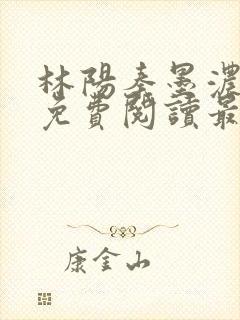 林陽秦墨濃
免費閱讀最
康金山